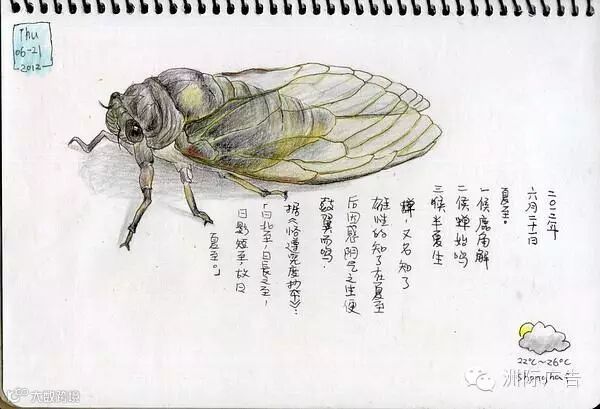 Thu
06-21
-2012-
二〇一二年
六月二十一日
夏至。
一候鹿角解
二候蝉始鸣
三候半夏生
蝉,又名知了
雄性的知了在夏至
后因感阴气之生便
鼓翼而鸣。
据《恪遵宪度抄本》:
「日北至,日長之至,
日影短至,故曰
夏至。」
22℃~26℃
Shanghai
洲际广告
大数跨境